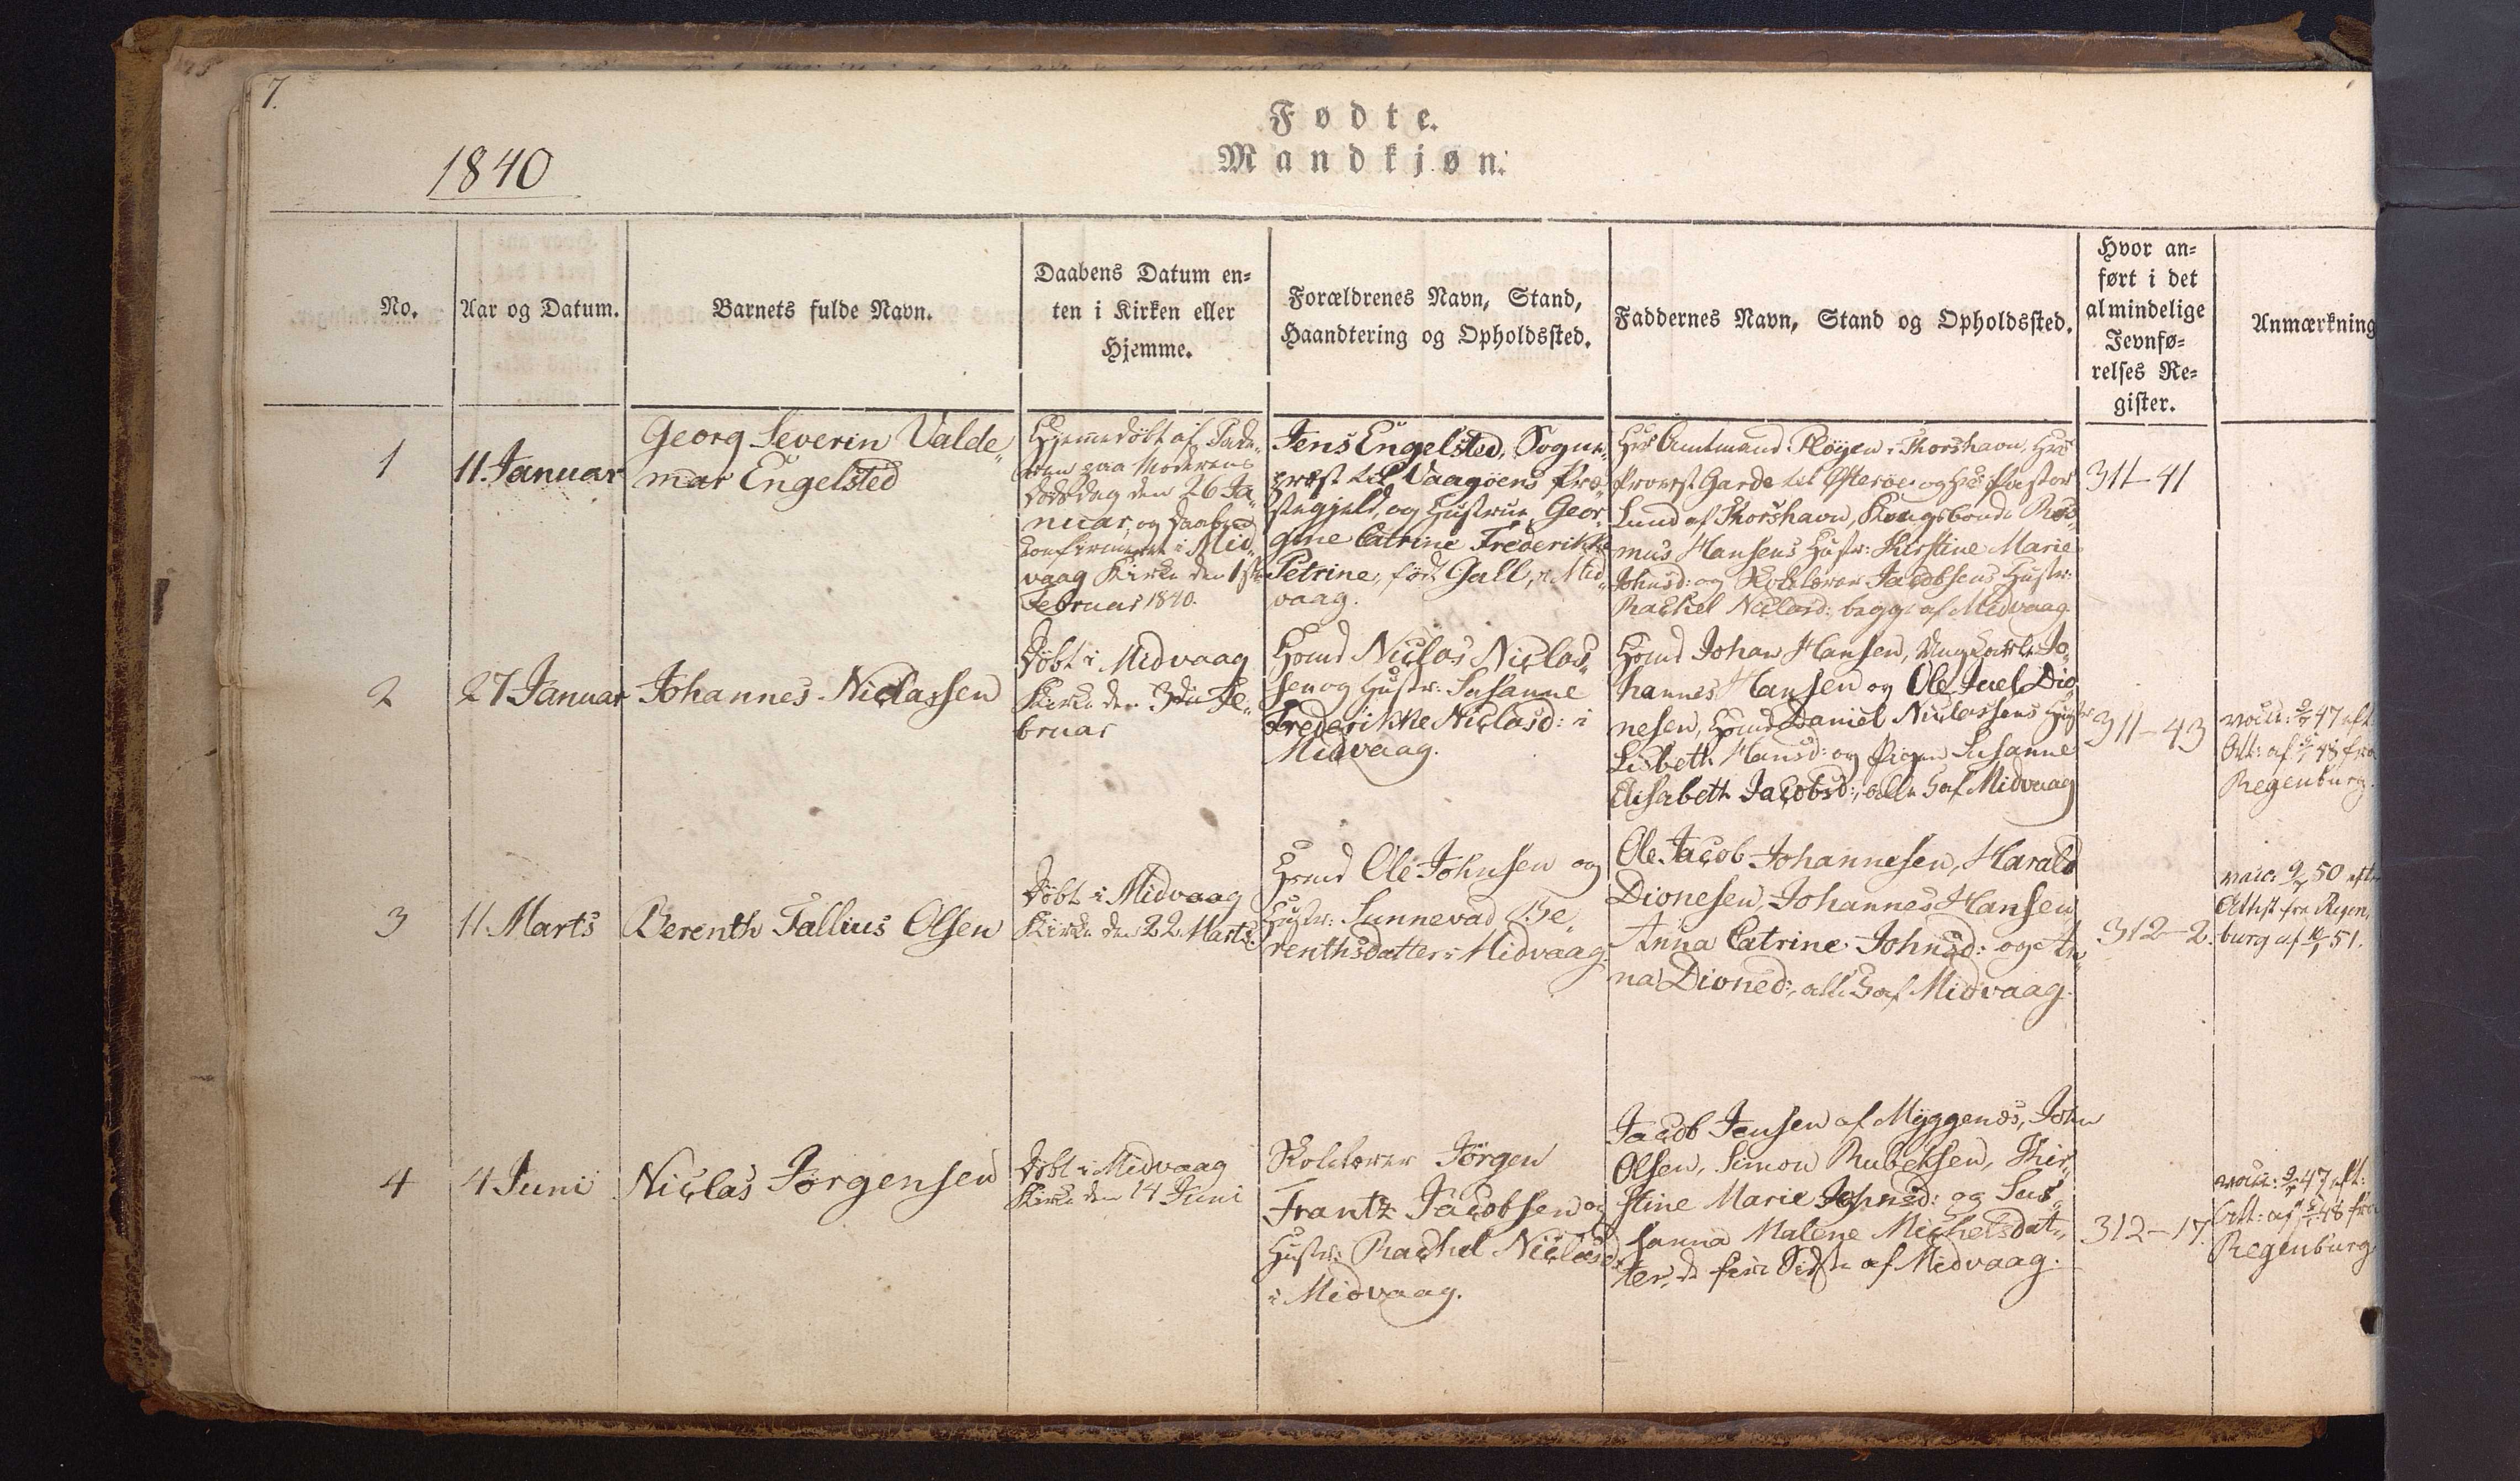 7.
Fødte.
Mandkjøn.
1840
No.
Aar og Datum.
Barnets fulde Navn.
Daabens Datum en-
ten i Kirken eller
Hjemme.
Forældrenes Navn, Stand,
Haandtering og Opholdssted.
Faddernes Navn, Stand og Opholdssted.
Hvor an-
ført i det
almindelige
Jevnfø-
relses Re-
gister.
Anmærkning
1
11. Januar
Georg Severin Valde„
mar Engelsted
Hjemmedöbt af Fade„
ren paa Moderens
Dødsdag den 26 Ja„
nuar, og Daaben
confirmeret i Mid„
vaag Kirke den 1ste
Februar 1840.
Jens Engelsted, Sogne„
præst til Vaagöens Præ„
stegjeld, og Hustrue Geor„
gine Catrine Frederikke
Petrine, föd Gall, i Mid„
vaag.
Hr Amtmand Plöyen i Thorshavn, Hr
Provst Garde til Österöe og Hr Pastor
Lund af Thorshavn, Kongsbonde Ras„
mus Hansens Hustr: Kirstine Marie
Johnsd: og Skolelærer Jacobsens Hustr:
Rachel Niclasd: begge af Midvaag
311-41
2
27 Januar
Johannes Niclassen
Döbt i Midvaag
Kirke den 3die Fe„
bruar
Hmd Niclas Niclas„
sen og Hustr: Susanne
Frederikke Niclasd: i
Midvaag.
Hmd Johan Hansen, Ungkarle Jo„
hannes Hansen og Ole Juel Dio„
nesen, Hmd Daniel Niclassens Hustr
Lisbeth Hansd: og Pigen Susanne
Elisabeth Jacobsd:, alle 5 af Midvaag
311-43
47 eft:
Att: af 48 fra
Regenburg.
3
11. Marts
Berenth Tallius Olsen
Döbt i Midvaag
Kirke den 22 Marts.
Hmd Ole Johnsen og
Hustr: Sunnevad Be„
renthsdatter i Midvaag.
Ole Jacob Johannesen, Harald
Dionesen, Johannes Hansen
Anna Catrine Johnsd: og An„
na Dionesd:, alle 5 af Midvaag.
312-2.
vacc: 50 eft
Attest fra Regen„
burg af 51.
4
4 Juni
Niclas Jörgensen
Döbt i Midvaag
Kirke den 14 Juni
Skolelærer Jörgen
Frantz Jacobsen og
Hustr: Rachel Niclasd:
i Midvaag.
Jacob Jensen af Myggenæs, John
Olsen, Simon Rubeksen, Kir„
stine Marie Johnsd: og Su„
sanna Malene Michelsdat„
ter, de fire Sidste af Midvaag.
312-17.
47 eft:
Att: af 48 fra
Regenburg